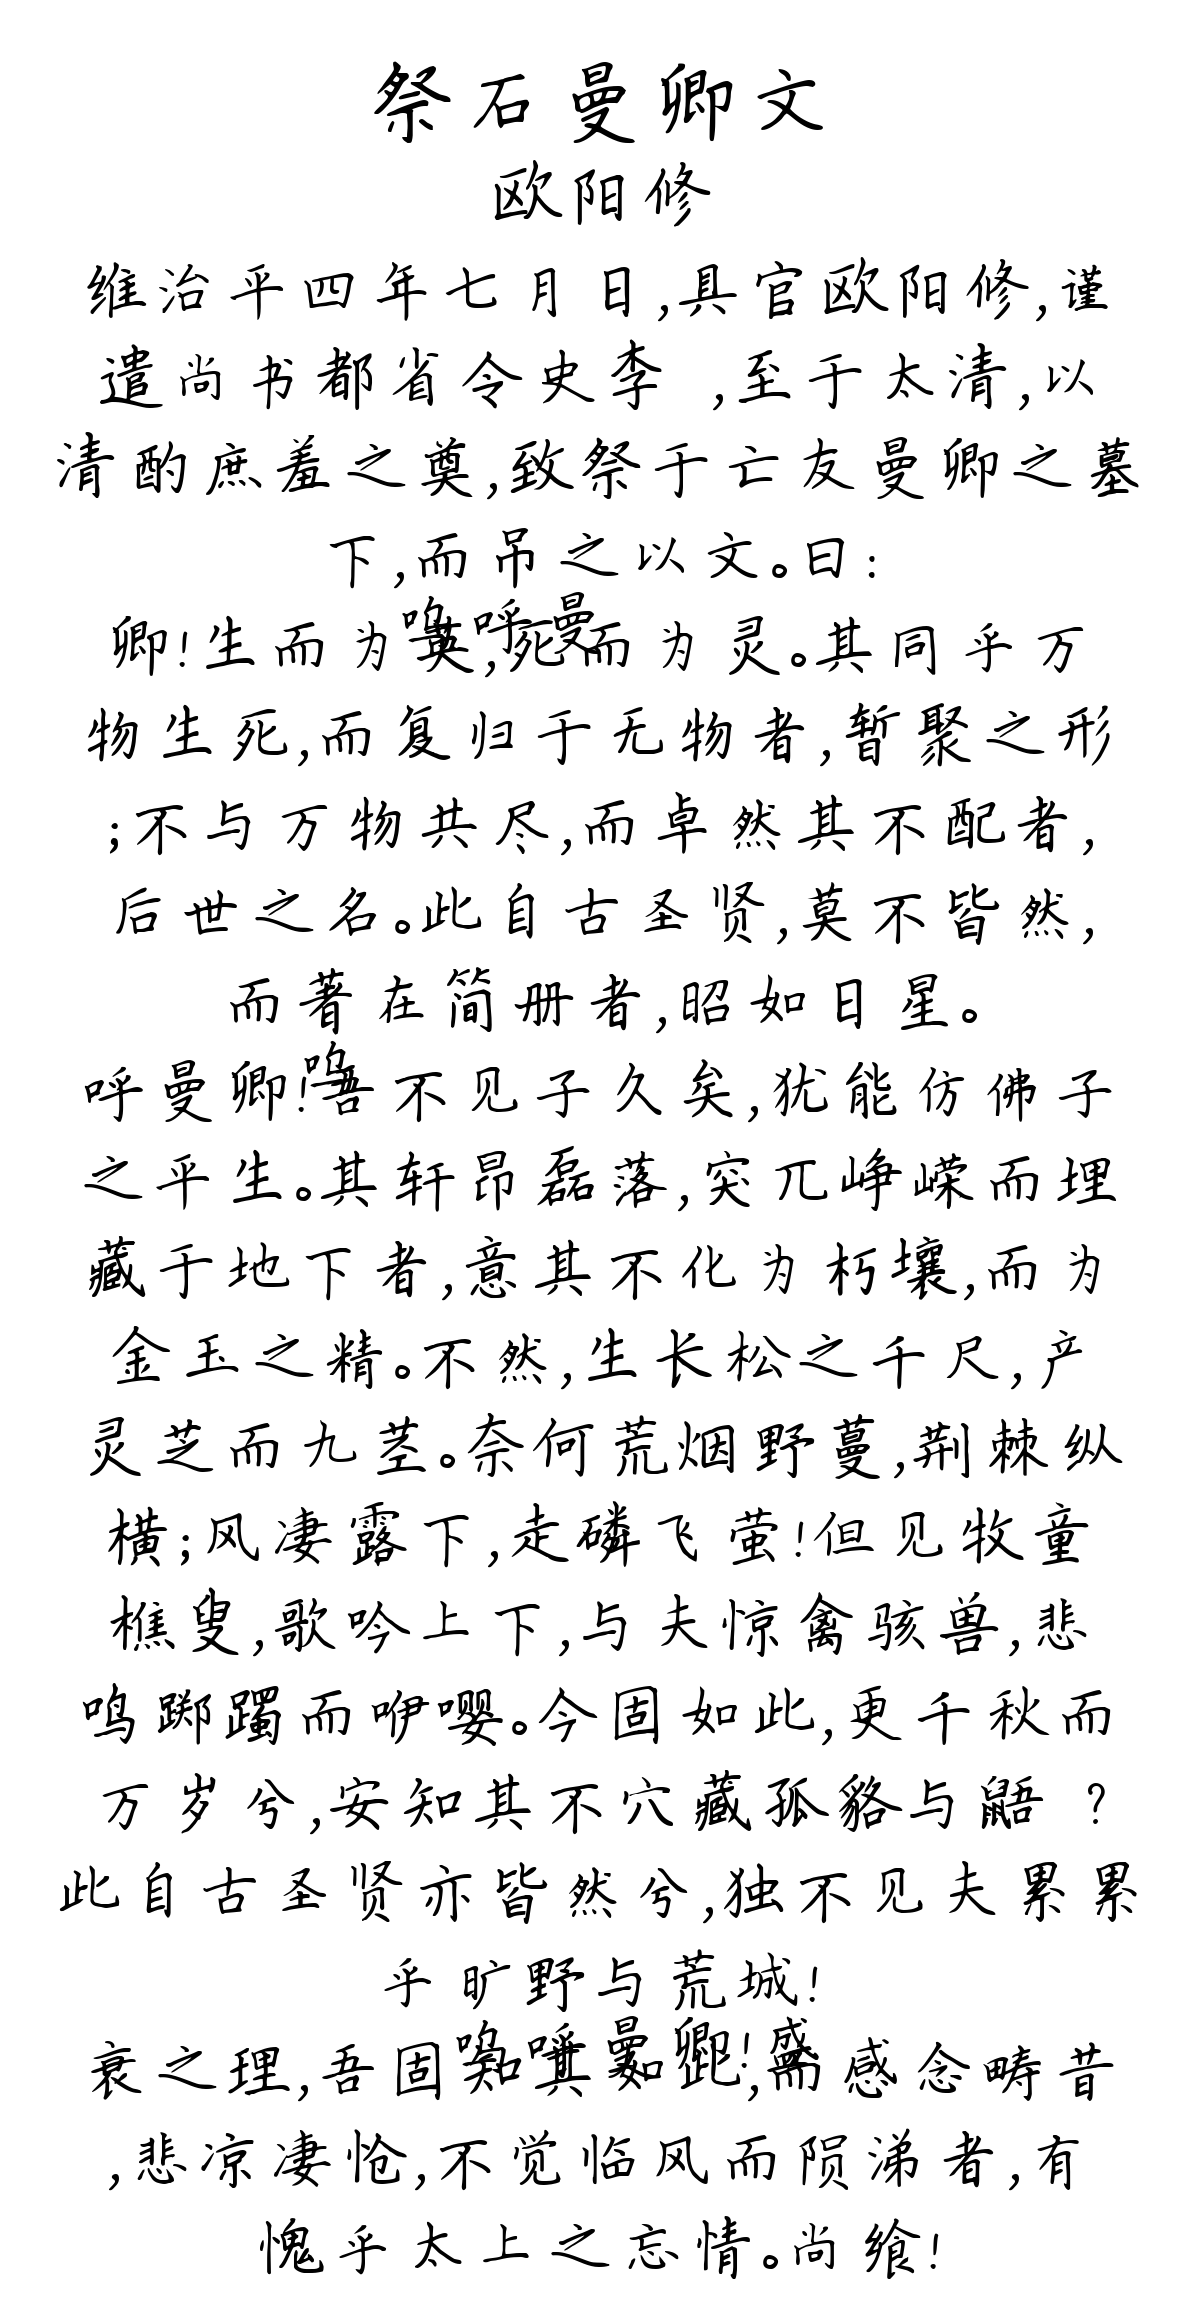 祭石曼卿文
欧阳修
维治平四年七月日,具官欧阳修,谨
遣尚书都省令史李 ,至于太清,以
清酌庶羞之奠,致祭于亡友曼卿之墓
下,而吊之以文。曰:
呜呼曼
卿!生而为英,死而为灵。其同乎万
物生死,而复归于无物者,暂聚之形
;不与万物共尽,而卓然其不配者,
后世之名。此自古圣贤,莫不皆然,
而著在简册者,昭如日星。
呜
呼曼卿!吾不见子久矣,犹能仿佛子
之平生。其轩昂磊落,突兀峥嵘而埋
藏于地下者,意其不化为朽壤,而为
金玉之精。不然,生长松之千尺,产
灵芝而九茎。奈何荒烟野蔓,荆棘纵
横;风凄露下,走磷飞萤!但见牧童
樵叟,歌吟上下,与夫惊禽骇兽,悲
鸣踯躅而咿嘤。今固如此,更千秋而
万岁兮,安知其不穴藏孤貉与鼯 ?
此自古圣贤亦皆然兮,独不见夫累累
乎旷野与荒城!
呜呼曼卿!盛
衰之理,吾固知其如此,而感念畴昔
,悲凉凄怆,不觉临风而陨涕者,有
愧乎太上之忘情。尚飨!